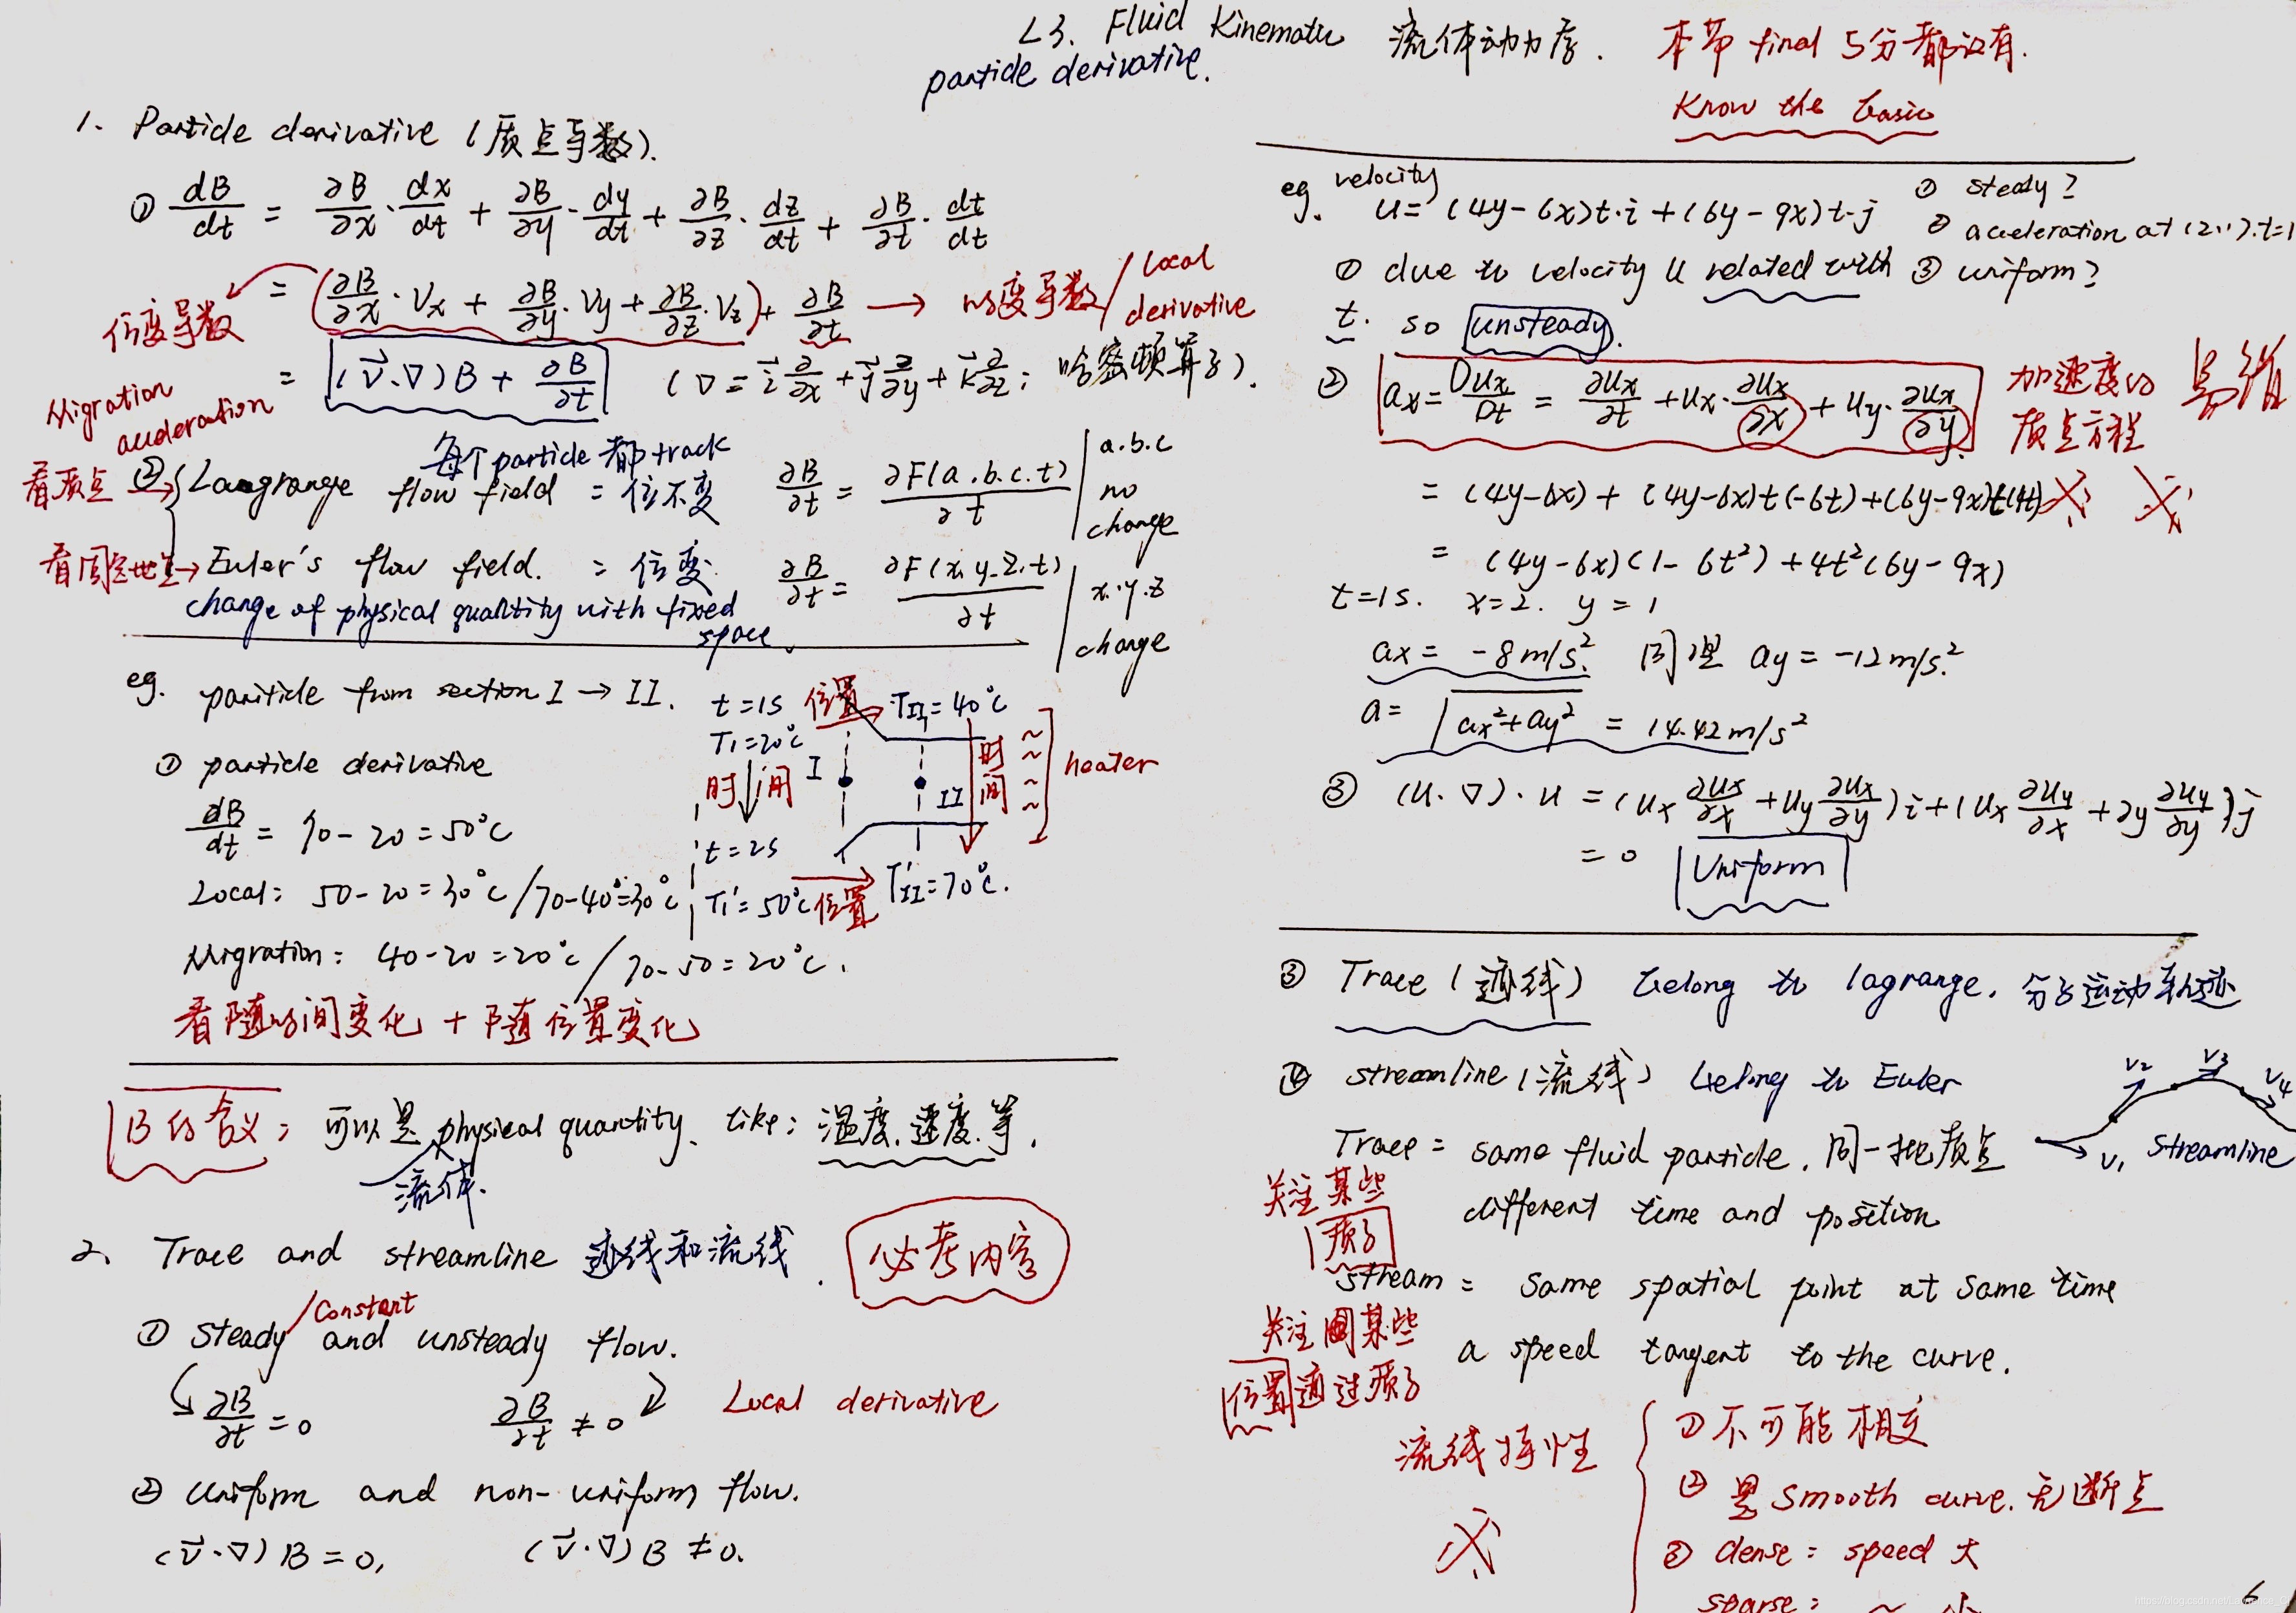 L3. Fluid Kinematic 流体动力学. 本节 final 5分都没有.
particle derivative.
Know the basic
1. Particle derivative (质点导数).
① dB/dt = ∂B/∂x · dx/dt + ∂B/∂y · dy/dt + ∂B/∂z · dz/dt + ∂B/∂t · dt/dt
位变导数 = (∂B/∂x · Vx + ∂B/∂y · Vy + ∂B/∂z · Vz) + ∂B/∂t → 时变导数 / local derivative
Migration acceleration = (v⃗·∇)B + ∂B/∂t (∇ = i⃗ ∂/∂x + j⃗ ∂/∂y + k⃗ ∂/∂z ; 哈密顿算子).
每个 particle 都 track
看质点 ② → Laugrange flow field = 位不变 ∂B/∂t = ∂F(a.b.c.t)/∂t | a.b.c no change
看固定地点 → Euler's flow field. = 位变 ∂B/∂t = ∂F(x.y.z.t)/∂t | x.y.z change
change of physical qualtity with fixed space.
eg. pariticle from section I → II.
t=1s 位置 TII=40°C
TI=20°C
时间 I II 时间 heater
t=2s
TI'=50°C 位置 TII'=70°C.
① particle derivative
dB/dt = 70-20=50°C
Local: 50-20=30°C / 70-40=30°C
Migration: 40-20=20°C / 70-50=20°C.
看随时间变化 + 随位置变化
B的含义: 可以是 physical quantity. like: 温度.速度.等.
流体.
2. Trace and streamline 迹线和流线. 必考内容
① Steady/Constant and unsteady flow.
∂B/∂t = 0 ∂B/∂t ≠ 0 Local derivative
② Uniform and non-uniform flow.
(v⃗·∇)B=0, (v⃗·∇)B≠0.
eg. velocity u=(4y-6x)t·i+(6y-9x)t·j
① steady?
② acceleration at (2,1).t=1
③ uniform?
① due to velocity u related with
t. so unsteady.
② ax = Dux/Dt = ∂ux/∂t + ux·∂ux/∂x + uy·∂ux/∂y 加速度的质点方程
= (4y-6x)+(4y-6x)t(-6t)+(6y-9x)t(4t)
= (4y-6x)(1-6t²)+4t²(6y-9x)
t=1s. x=2. y=1
ax = -8m/s². 同理 ay=-12m/s².
a=√ax²+ay² = 14.42m/s²
③ (u·∇)·u = (ux ∂ux/∂x + uy ∂ux/∂y)i+(ux ∂uy/∂x + ∂y ∂uy/∂y)j
= 0 Uniform
③ Trace (迹线) belong to lagrange. 分子运动轨迹
④ streamline (流线) belong to Euler
v1 v2 v3 v4 streamline
Trace = same fluid particle. 同一批质点
different time and position
关注某些
质子
stream = same spatial point at same time
a speed tangent to the curve.
关注某些
位置通过质子
流线特性
① 不可能相交
② 是 smooth curve. 无断点
③ dense: speed 大
sparse: ~ 小
6